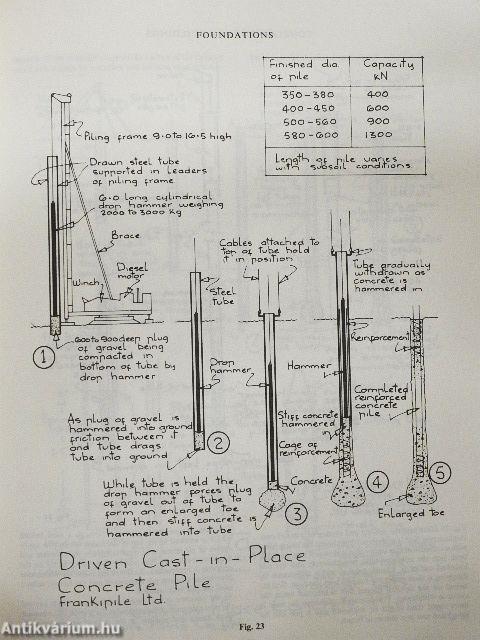 FOUNDATIONS
Finished dia. of pile
Capacity kN
350-380 400
400-450 600
500-560 900
580-600 1300
Length of pile varies
with subsoil conditions.
Piling frame 9.0 to 16.5 high
Drawn steel tube
supported in leaders
of piling frame
6.0 long cylindrical
drop hammer weighing
2000 to 3000 kg
Brace
Diesel
motor
Winch
1
600 to 900 deep plug
of gravel being
compacted in
bottom of tube by
drop hammer
Steel
Tube
Drop
hammer
As plug of gravel is
hammered into ground
friction between it
and tube drags
tube into ground
2
Cables attached to
top of tube hold
it in position
While tube is held the
drop hammer forces plug
of gravel out of tube to
form an enlarged toe
and then stiff concrete is
hammered into tube
Concrete
3
Tube gradually
withdrawn as
concrete is
hammered in
Hammer
Stiff concrete
hammered in
Cage of
reinforcement
4
Reinforcement
Completed
reinforced
concrete
pile
5
Enlarged toe
Driven Cast-in-Place
Concrete Pile
FranKipile Ltd.
Fig. 23
Antikvárium.hu